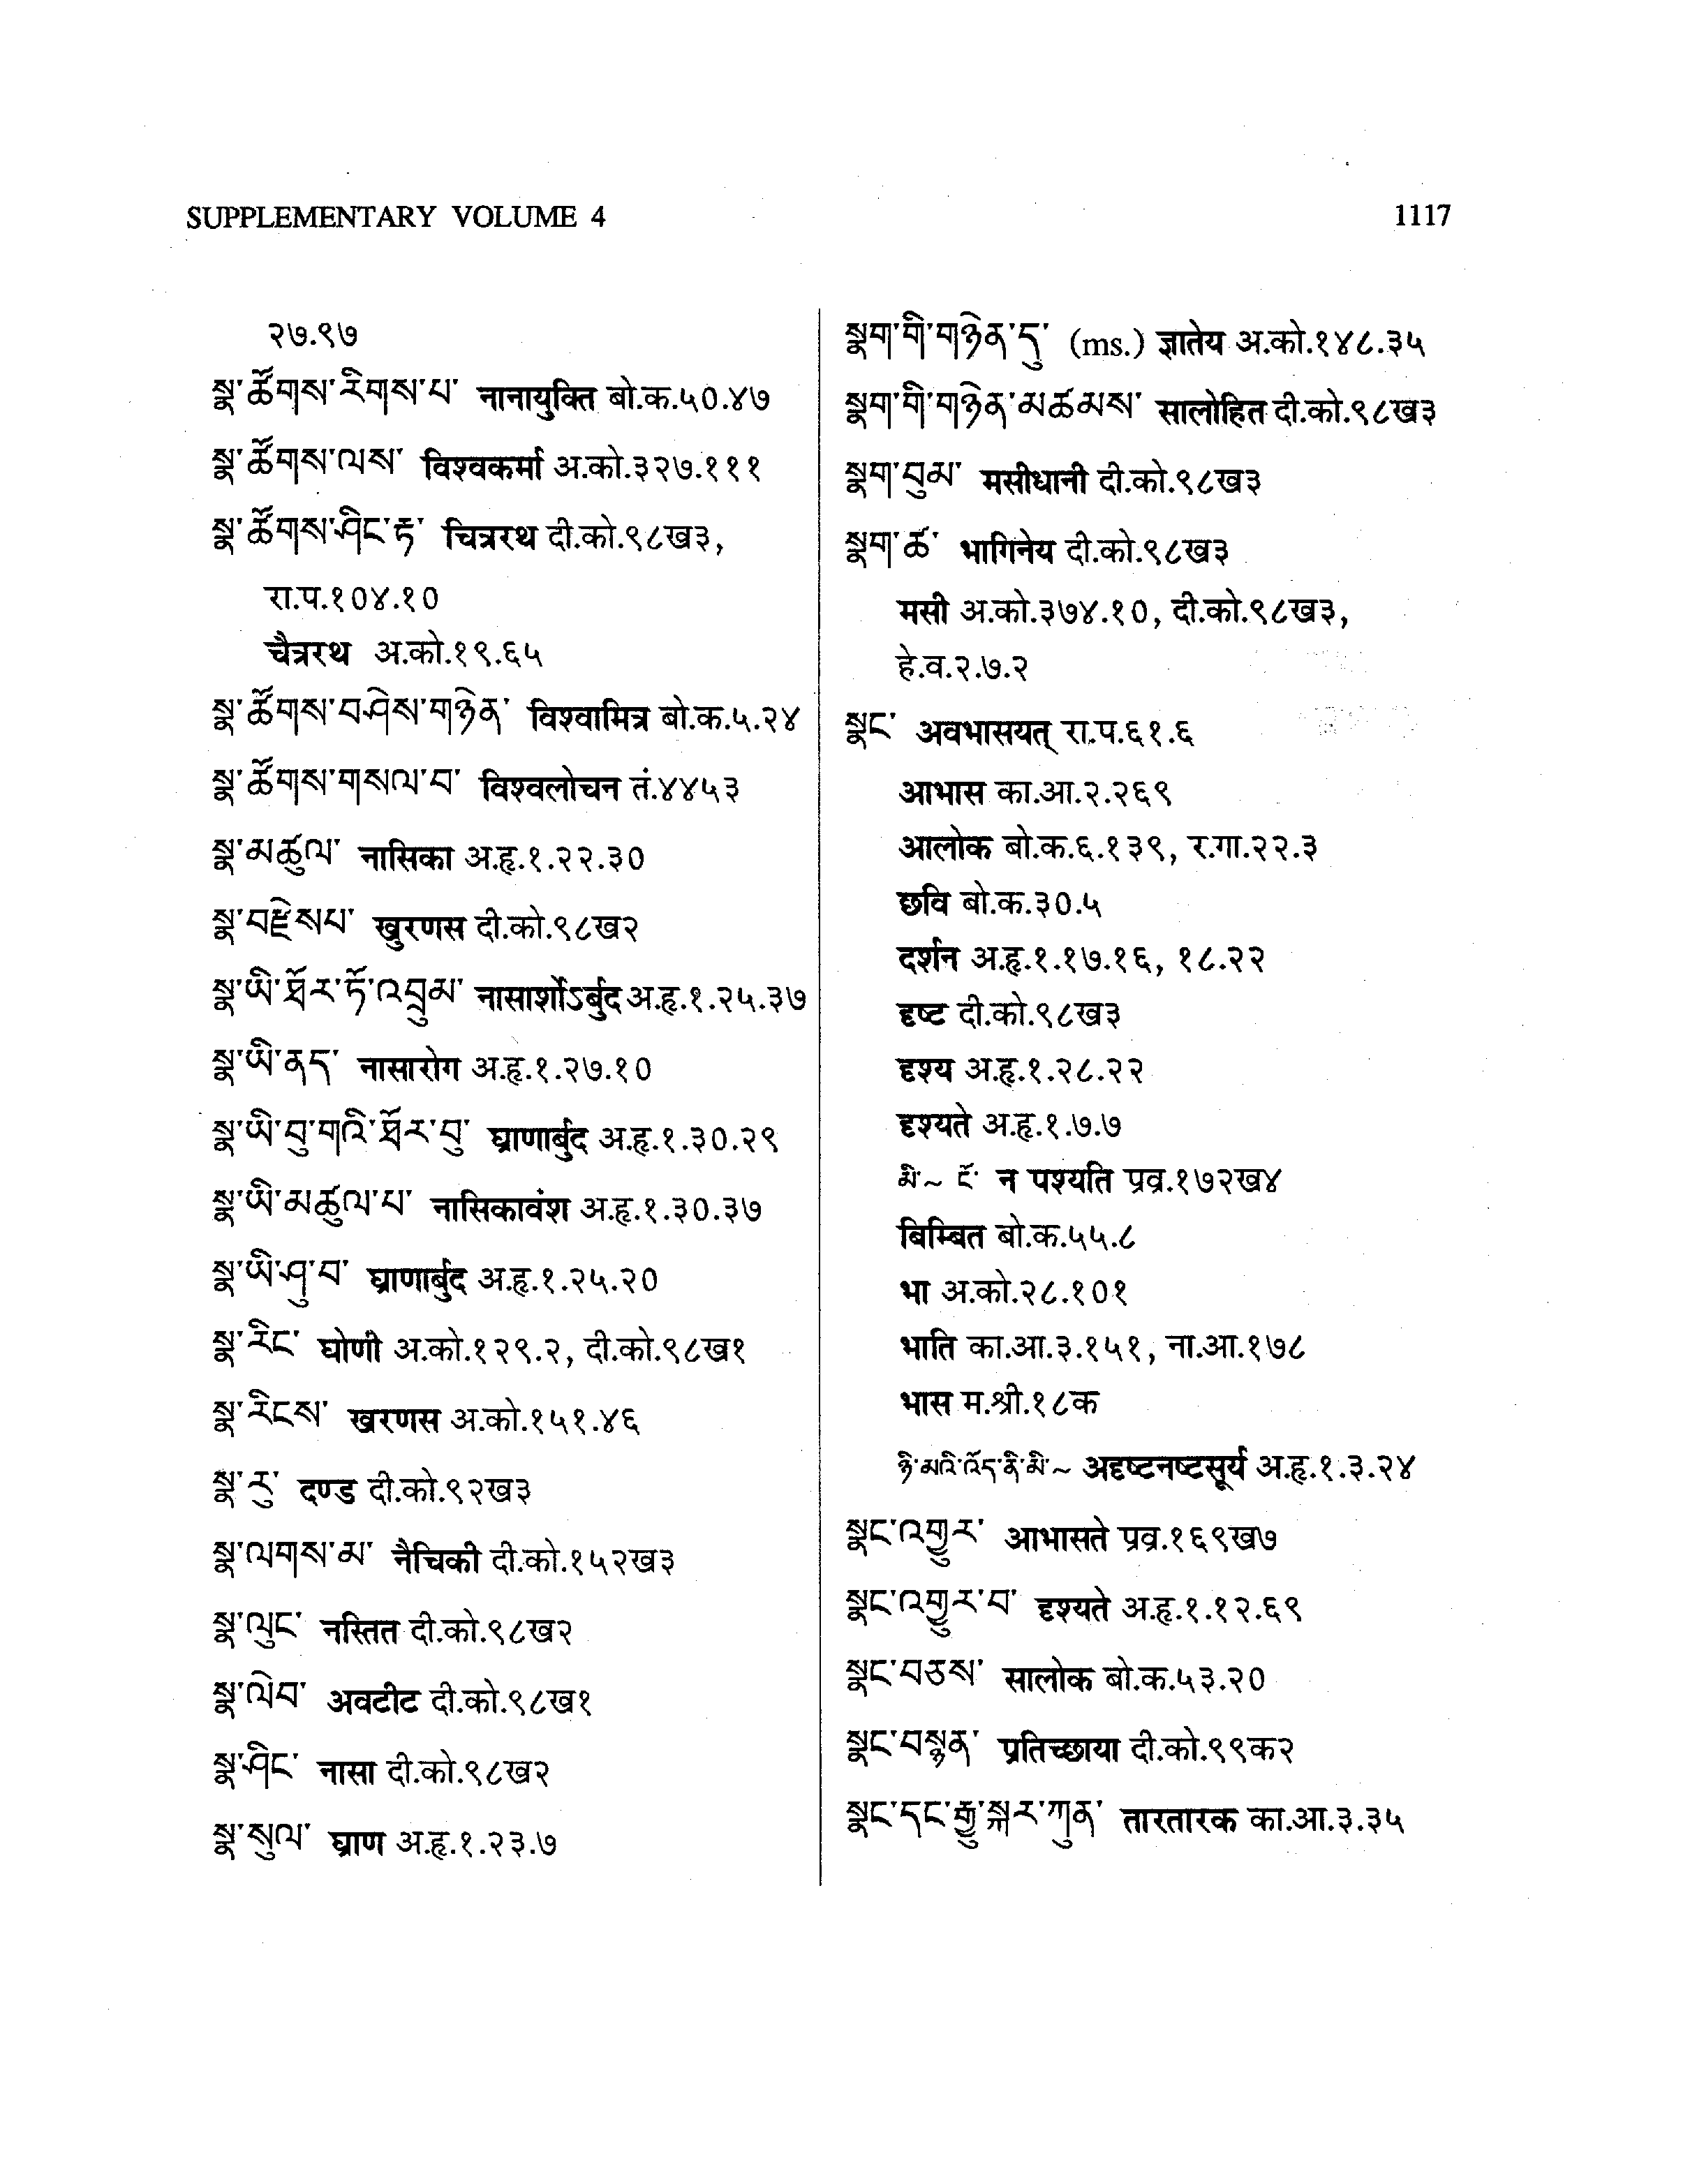 SUPPLEMENTARY VOLUME 4 1117
२७.९७
སྣ་ཚོགས་རིགས་པ་ नानायुक्ति बो.क.५०.४७
སྣ་ཚོགས་ལས་ विश्वकर्मा अ.को.३२७.१११
སྣ་ཚོགས་ཤིང་རྟ་ चित्ररथ दी.को.९८ख३,
रा.प.१०४.१०
चैत्ररथ अ.को.१९.६५
སྣ་ཚོགས་བཤེས་གཉེན་ विश्वामित्र बो.क.५.२४
སྣ་ཚོགས་གསལ་བ་ विश्वलोचन तं.४४५३
སྣ་མཚུལ་ नासिका अ.हृ.१.२२.३०
སྣ་བརྗེསཔ་ खुरणस दी.को.९८ख२
སྣ་ཡི་ཐོར་ཏོ་འབྲུམ་ नासार्शोऽर्बुद अ.हृ.१.२५.३७
སྣ་ཡི་ནད་ नासारोग अ.हृ.१.२७.१०
སྣ་ཡི་བུ་གའི་ཐོར་བུ་ घ्राणार्बुद अ.हृ.१.३०.२९
སྣ་ཡི་མཚུལ་པ་ नासिकावंश अ.हृ.१.३०.३७
སྣ་ཡི་ཤུ་བ་ घ्राणार्बुद अ.हृ.१.२५.२०
སྣ་རིང་ घोणी अ.को.१२९.२, दी.को.९८ख१
སྣ་རིངས་ खरणस अ.को.१५१.४६
སྣ་རུ་ दण्ड दी.को.९२ख३
སྣ་ལགས་མ་ नैचिकी दी.को.१५२ख३
སྣ་ལུང་ नस्तित दी.को.९८ख२
སྣ་ལེབ་ अवटीट दी.को.९८ख१
སྣ་ཤིང་ नासा दी.को.९८ख२
སྣ་སུལ་ घ्राण अ.हृ.१.२३.७
སྣག་གི་གཉེན་དུ་ (ms.) ज्ञातेय अ.को.१४८.३५
སྣག་གི་གཉེན་མཚམས་ सालोहित दी.को.९८ख३
སྣག་བུམ་ मसीधानी दी.को.९८ख३
སྣག་ཚ་ भागिनेय दी.को.९८ख३
मसी अ.को.३७४.१०, दी.को.९८ख३,
हे.व.२.७.२
སྣང་ अवभासयत् रा.प.६१.६
आभास का.आ.२.२६९
आलोक बो.क.६.१३९, र.गा.२२.३
छवि बो.क.३०.५
दर्शन अ.हृ.१.१७.१६, १८.२२
दृष्ट दी.को.९८ख३
दृश्य अ.हृ.१.२८.२२
दृश्यते अ.हृ.१.७.७
མི་~ ངོ་ न पश्यति प्रव्र.१७२ख४
बिम्बित बो.क.५५.८
भा अ.को.२८.१०१
भाति का.आ.३.१५१, ना.आ.१७८
भास म.श्री.१८क
ཉི་མའི་འོད་ནི་མི་~ अदृष्टनष्टसूर्य अ.हृ.१.३.२४
སྣང་འགྱུར་ आभासते प्रव्र.१६९ख७
སྣང་འགྱུར་བ་ दृश्यते अ.हृ.१.१२.६९
སྣང་བཅས་ सालोक बो.क.५३.२०
སྣང་བསྙན་ प्रतिच्छाया दी.को.९९क२
སྣང་དང་རྒྱུ་སྐར་ཀུན་ तारतारक का.आ.३.३५